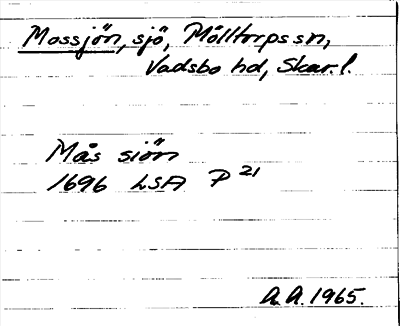 Mossjön, sjö, Mölltorps sn,
Vadsbo hd, Skar. l.
Mås siön
1696 LSA P 21
A. A. 1965.